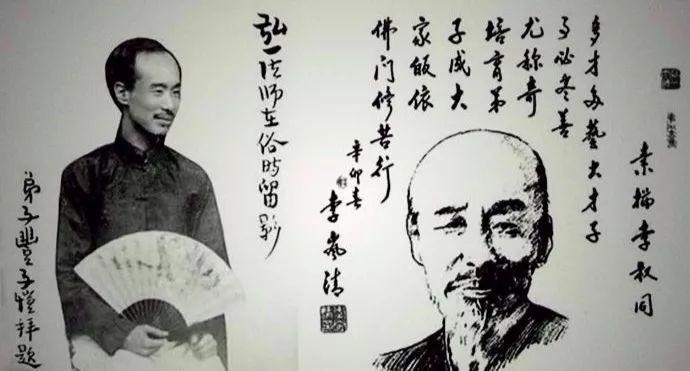 素描李叔同
多才多艺大才子
事必尽善
尤称奇
培育弟
子成大
家皈依
佛门修苦行
辛卯春
李岚清
弘一法師在俗時留影
弟子豐子愷拜題